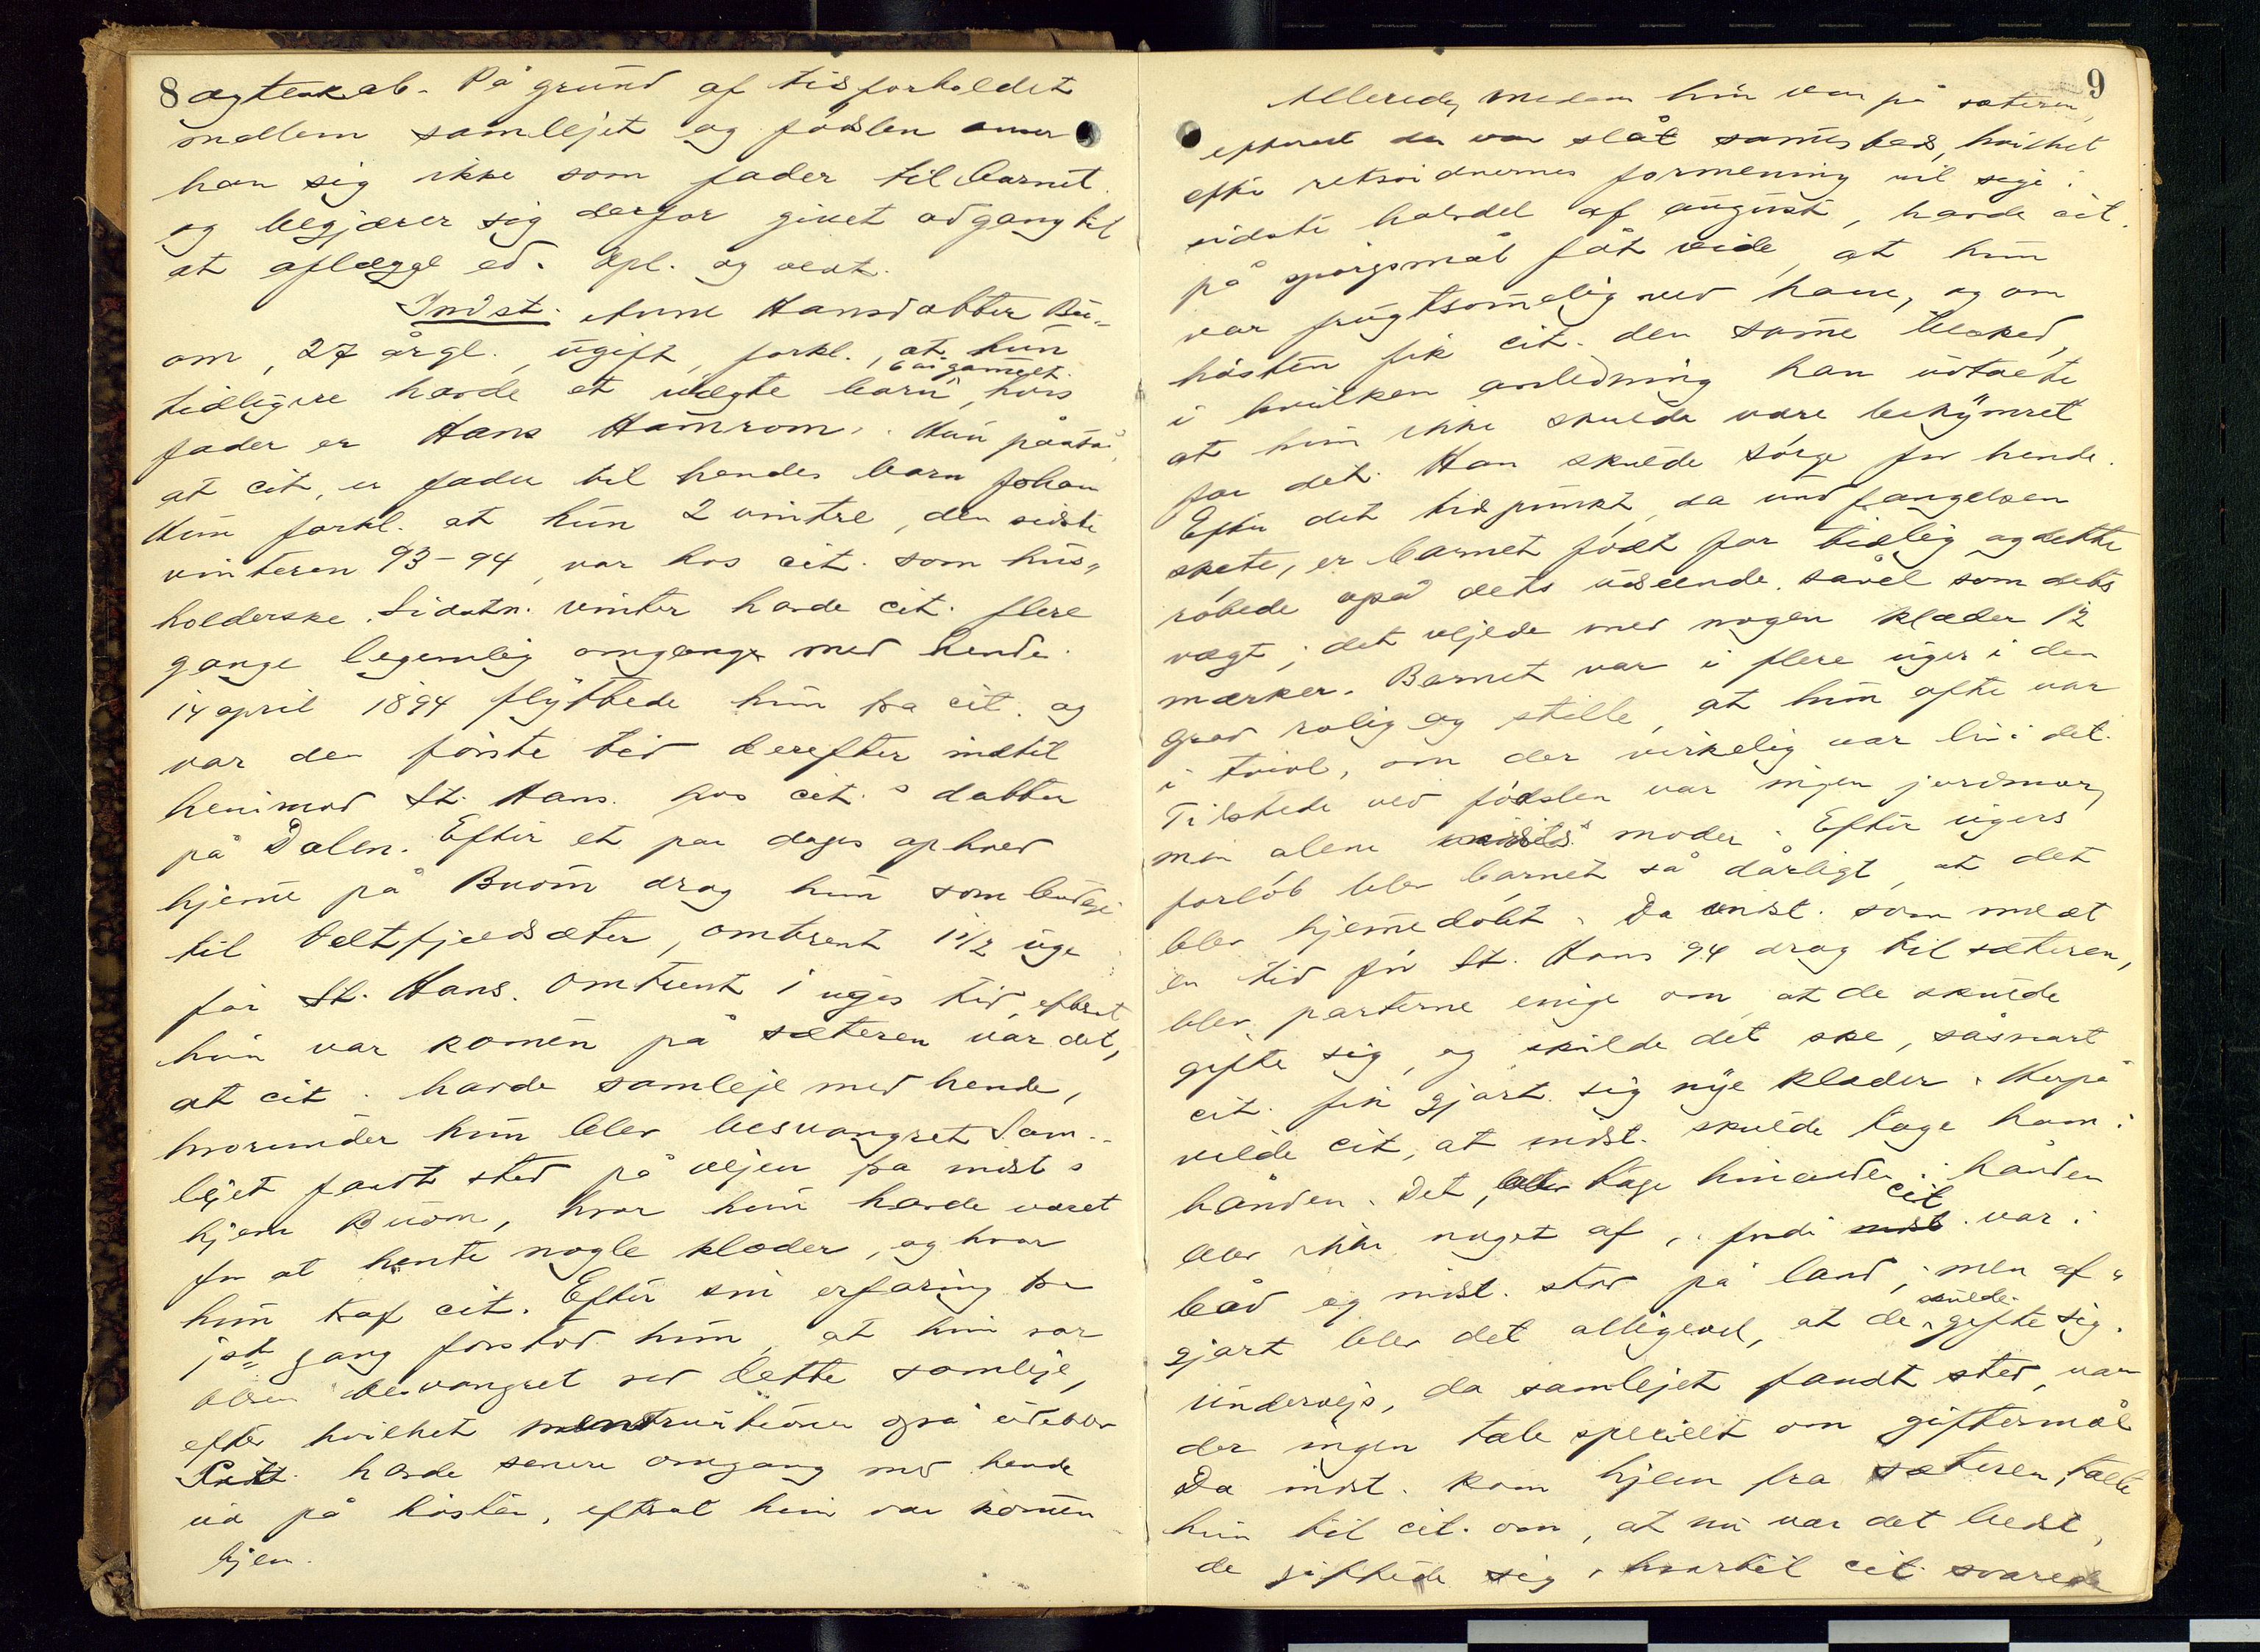 8 ægteskab. På grund af tidsforholdet
mellem samlejet og fødslen anser
han sig ikke som fader til barnet.
og begjærer sig derfor givet adgang til
at aflægge ed. Opl. og vedt.
Indst. Anne Hansdatter Bu-
om, 27 årgl., ugift, forkl., at hun
6 år gamelt.
tidligere havde et uægte barn, hvis
fader er Hans Hamrom. Hun påstår,
at cit. er fader til hendes barn Johan
Hun forkl. at hun 2 vintre, den sidste
vinteren 93-94, var hos cit. som hus-
holderske. Sidstn. vinter havde cit. flere
gange legemlig omgang med hende.
14 april 1894 flyttede hun fra cit. og
var den første tid derefter indtil
henimod St. Hans hos cit.s datter
på Dalen. Efter et par dages ophold
hjemme på Buom drog hun som budeje
til Veltfjeldsæter, omtrent 1 1/2 uge
før St. Hans. Omtrent 1 uges tid, efterat
hun var kommen på sæteren var det,
at cit. havde samleje med hende,
hvorunder hun blev besvangret. Sam-
lejet fandt sted på vejen fra indst.s
hjem Buom, hvor hun havde været
for at hente nogle klæder, og hvor
hun traf cit. Efter sin erfaring fra
1ste gang forstod hun, at hun var
bleven besvangret ved dette samleje,
efter hvilket menstruationen også udeblev
Cit. havde senere omgang med hende
ud på høsten, efterat hun var kommen
hjem.
9
Allerede, medens hun var på sæteren,
efterat der var slåt sammesteds, hvilket
efter retsvidnernes formening vil sige i
sidste halvdel af august, havde cit.
på spørgsmål fåt vide, at hun
var frugtsommelig ved ham, og om
høsten fik cit. den samme besked,
i hvilken anledning han udtalte
at hun ikke skulde være bekymret
for det. Han skulde sørge for hende.
Efter det tidspunkt, da undfangelsen
skete, er barnet født for tidlig og dette
røbede også dets udseende såvel som dets
vægt; det vejede med nogen klæder 12
mærker. Barnet var i flere uger i den
grad rolig og stille, at hun ofte var
i tvivl, om der virkelig var liv i det.
Tilstede ved fødslen var ingen jordmor,
men alene indst.s moder. Efter ugers
forløb blev barnet så dårligt, at det
blev hjemmedøbt. Da indst. som meldt
en tid før St. Hans 94 drog til sæteren,
blev parterne enige om, at de skulde
gifte sig, og skulde det ske, såsnart
cit. fik gjort sig nye klæder. Herpå
vilde cit, at indst. skulde tage ham i
hånden. Det, at tage hinanden i hånden
cit
blev ikke noget af, fordi indst. var i
båd og indst. stod på land; men af-
skulde
gjort blev det alligevel, at de gifte sig.
Undervejs, da samlejet fandt sted, var
der ingen tale specielt om giftermål
Da indst. kom hjem fra sæteren, talte
hun til cit. om, at nu var det bedst,
de giftede sig, hvortil cit. svarede